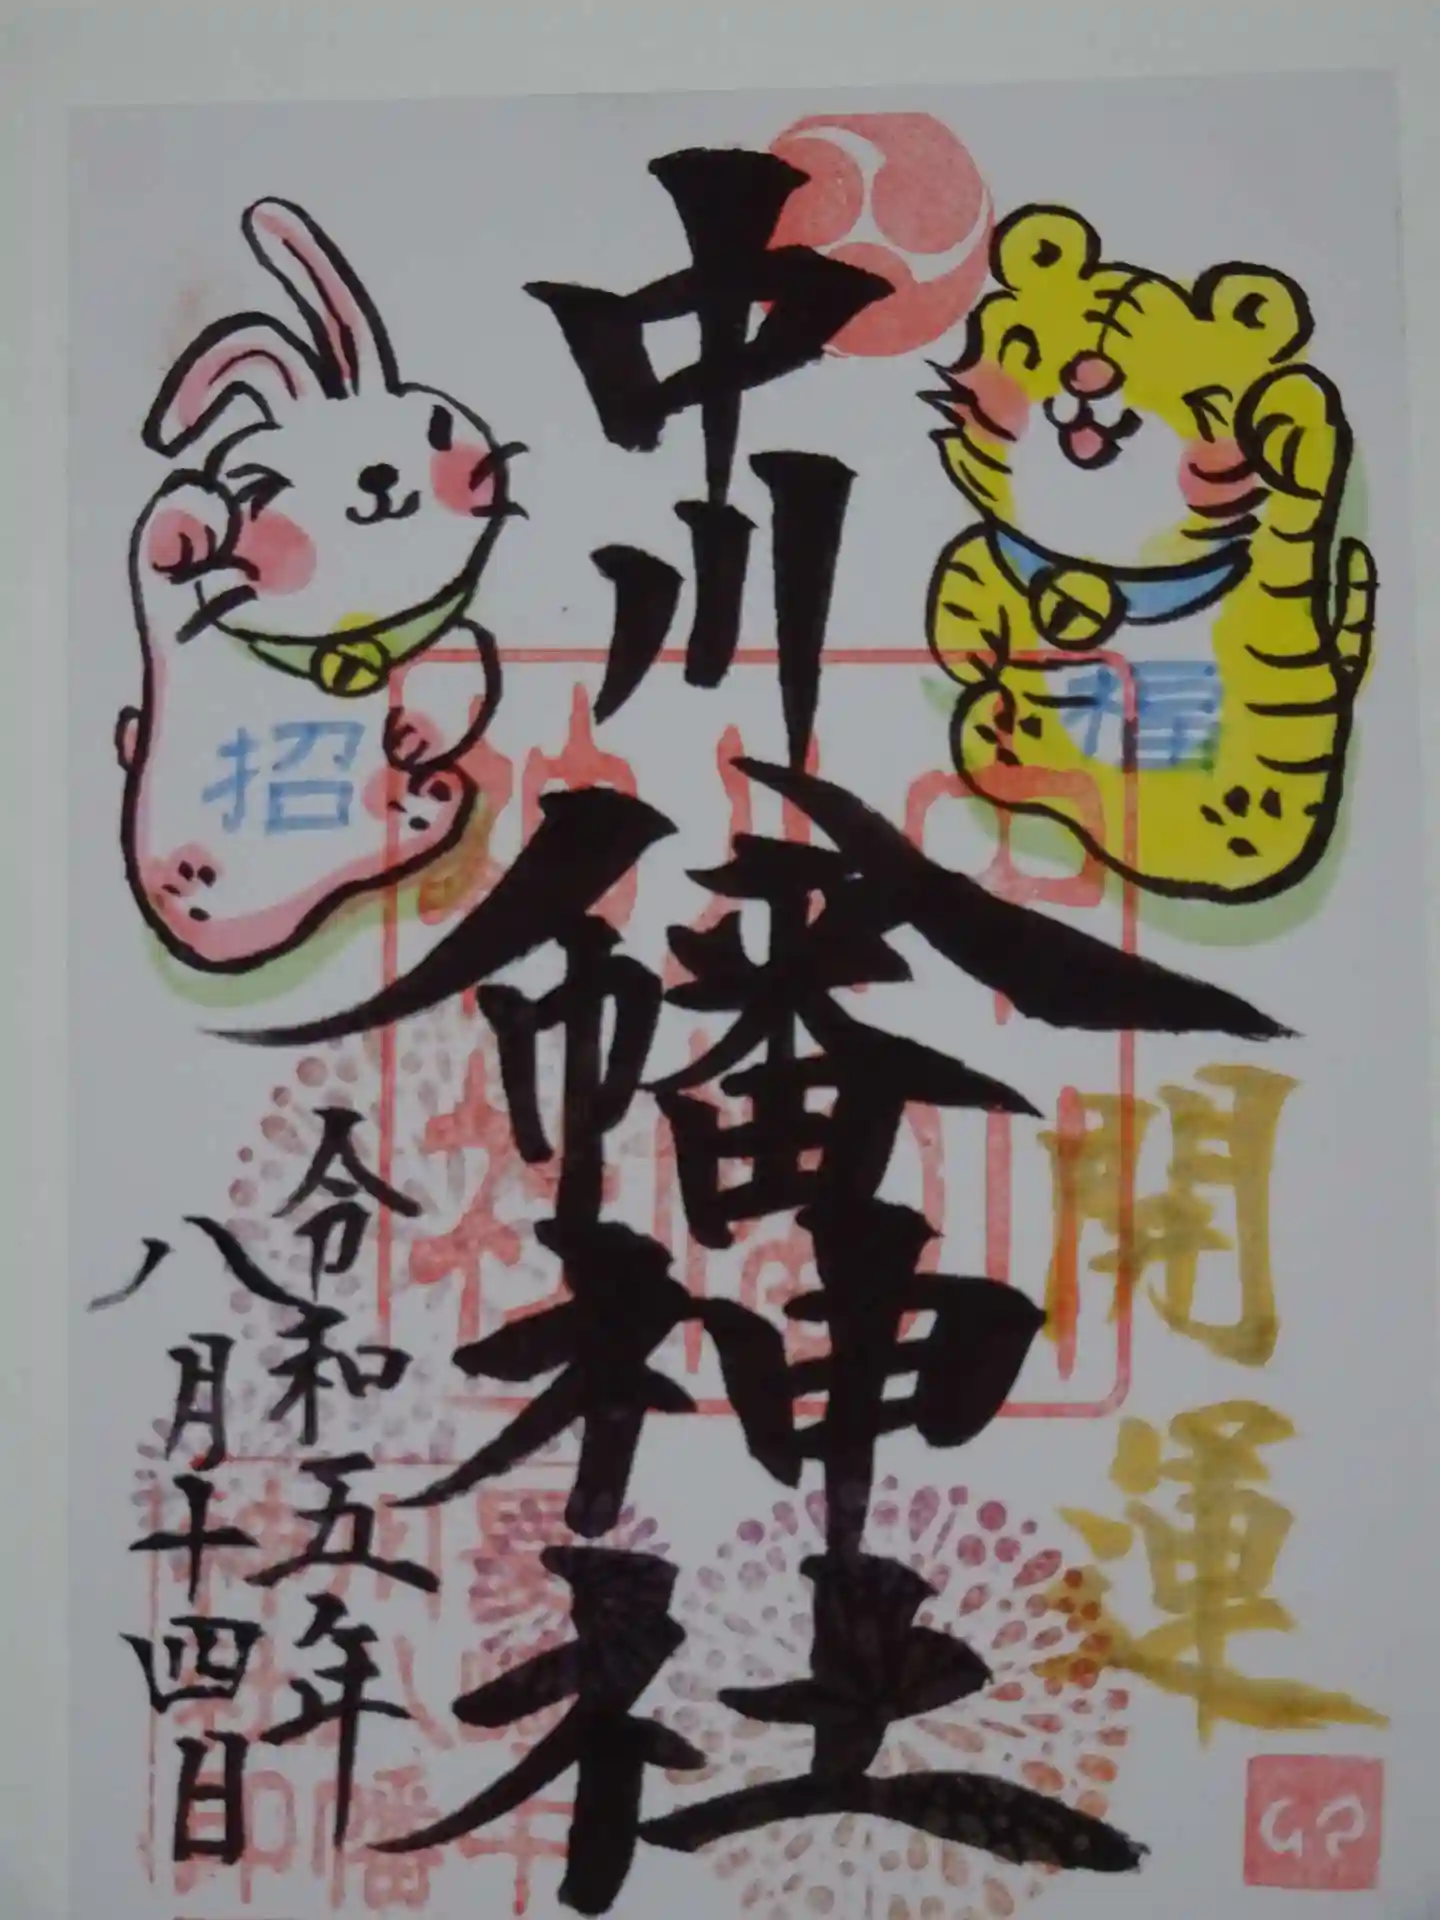 中川八幡神社
開運
福
招
令和五年
八月十四日